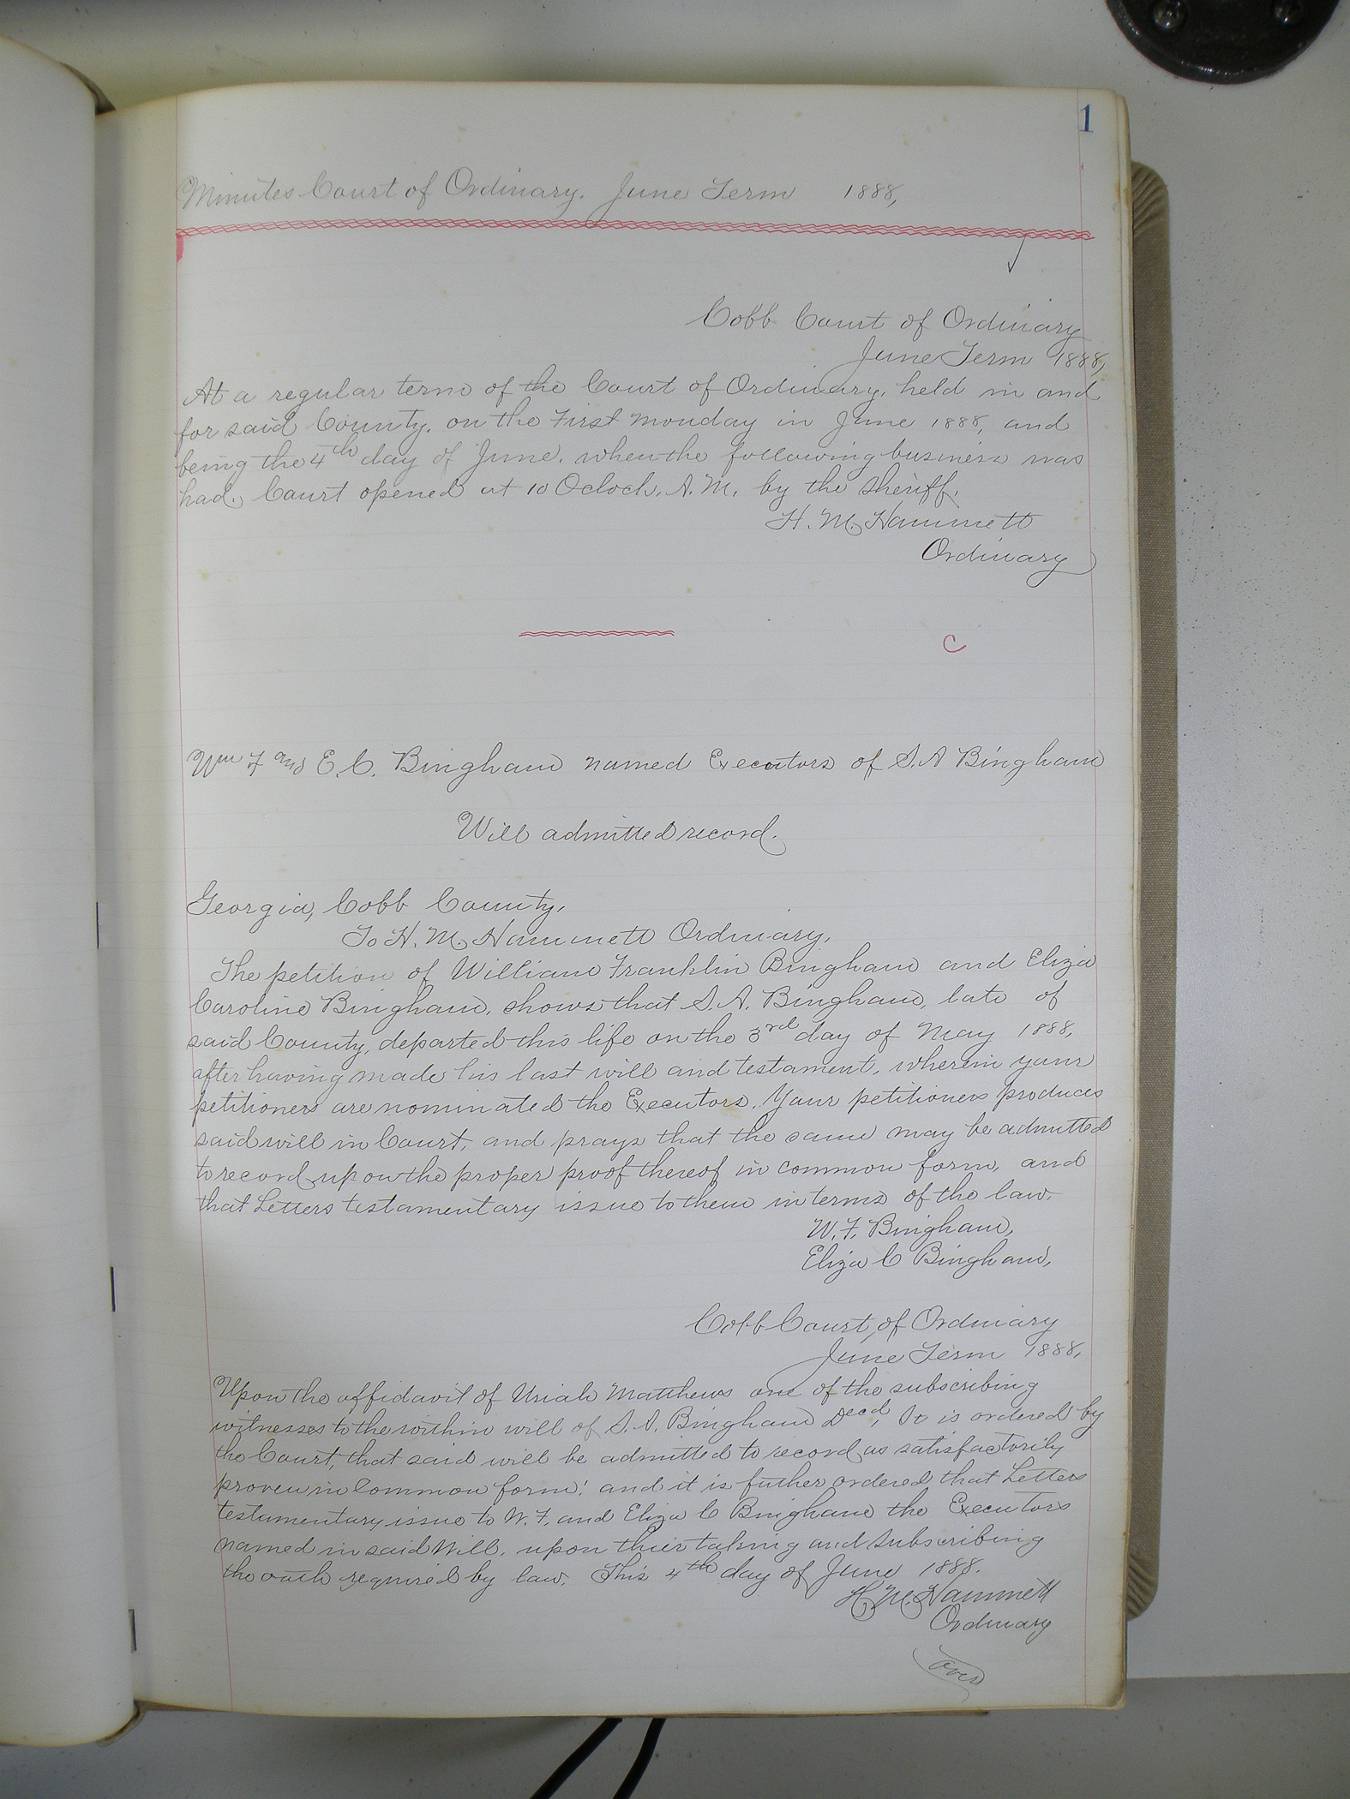 1
Minutes Court of Ordinary. June Term 1888,
Cobb Court of Ordinary
June Term 1888,
At a regular term of the Court of Ordinary, held in and
for said County, on the First Monday in June 1888, and
being the 4th day of June, when the following business was
had. Court opened at 10 Oclock, A.M. by the Sheriff.
H. M. Hammett
Ordinary
C
Wm F and E. C. Bingham named Executors of S. A Bingham
Will admitted record.
Georgia, Cobb County,
To H. M. Hammett Ordinary,
The petition of William Franklin Bingham and Eliza
Caroline Bingham, shows that S. A. Bingham, late of
said County, departed this life on the 3rd day of May 1888,
after having made his last will and testament, wherein your
petitioners are nominated the Executors. Your petitioners produces
said will in Court, and prays that the same may be admitted
to record upon the proper proof thereof in common form, and
that Letters testamentary issue to them in terms of the law.
W. F. Bingham,
Eliza C Bingham,
Cobb Court of Ordinary
June Term 1888,
Upon the affidavit of Uriah Matthews one of the subscribing
witnesses to the within will of S. A. Bingham Decd, It is ordered by
the Court, that said will be admitted to record as satisfactorily
proven in Common form: and it is futher ordered that Letters
testamentary issue to W. F. and Eliza C Bingham the Executors
named in said Will, upon thier taking and subscribing
the oath required by law. This 4th day of June 1888.
H. M. Hammett
Ordinary
(over)